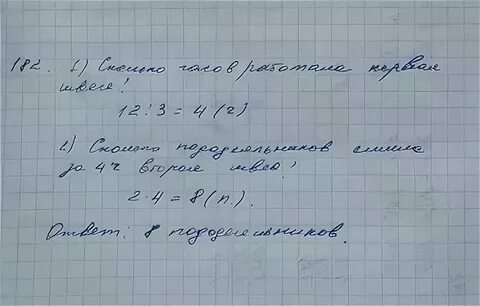 182. 1) Сколько часов работала первая
швея?
12:3=4(ч)
2) Сколько пододеяльников сшила
за 4ч вторая швея?
2·4=8(п.).
Ответ: 8 пододеяльников.